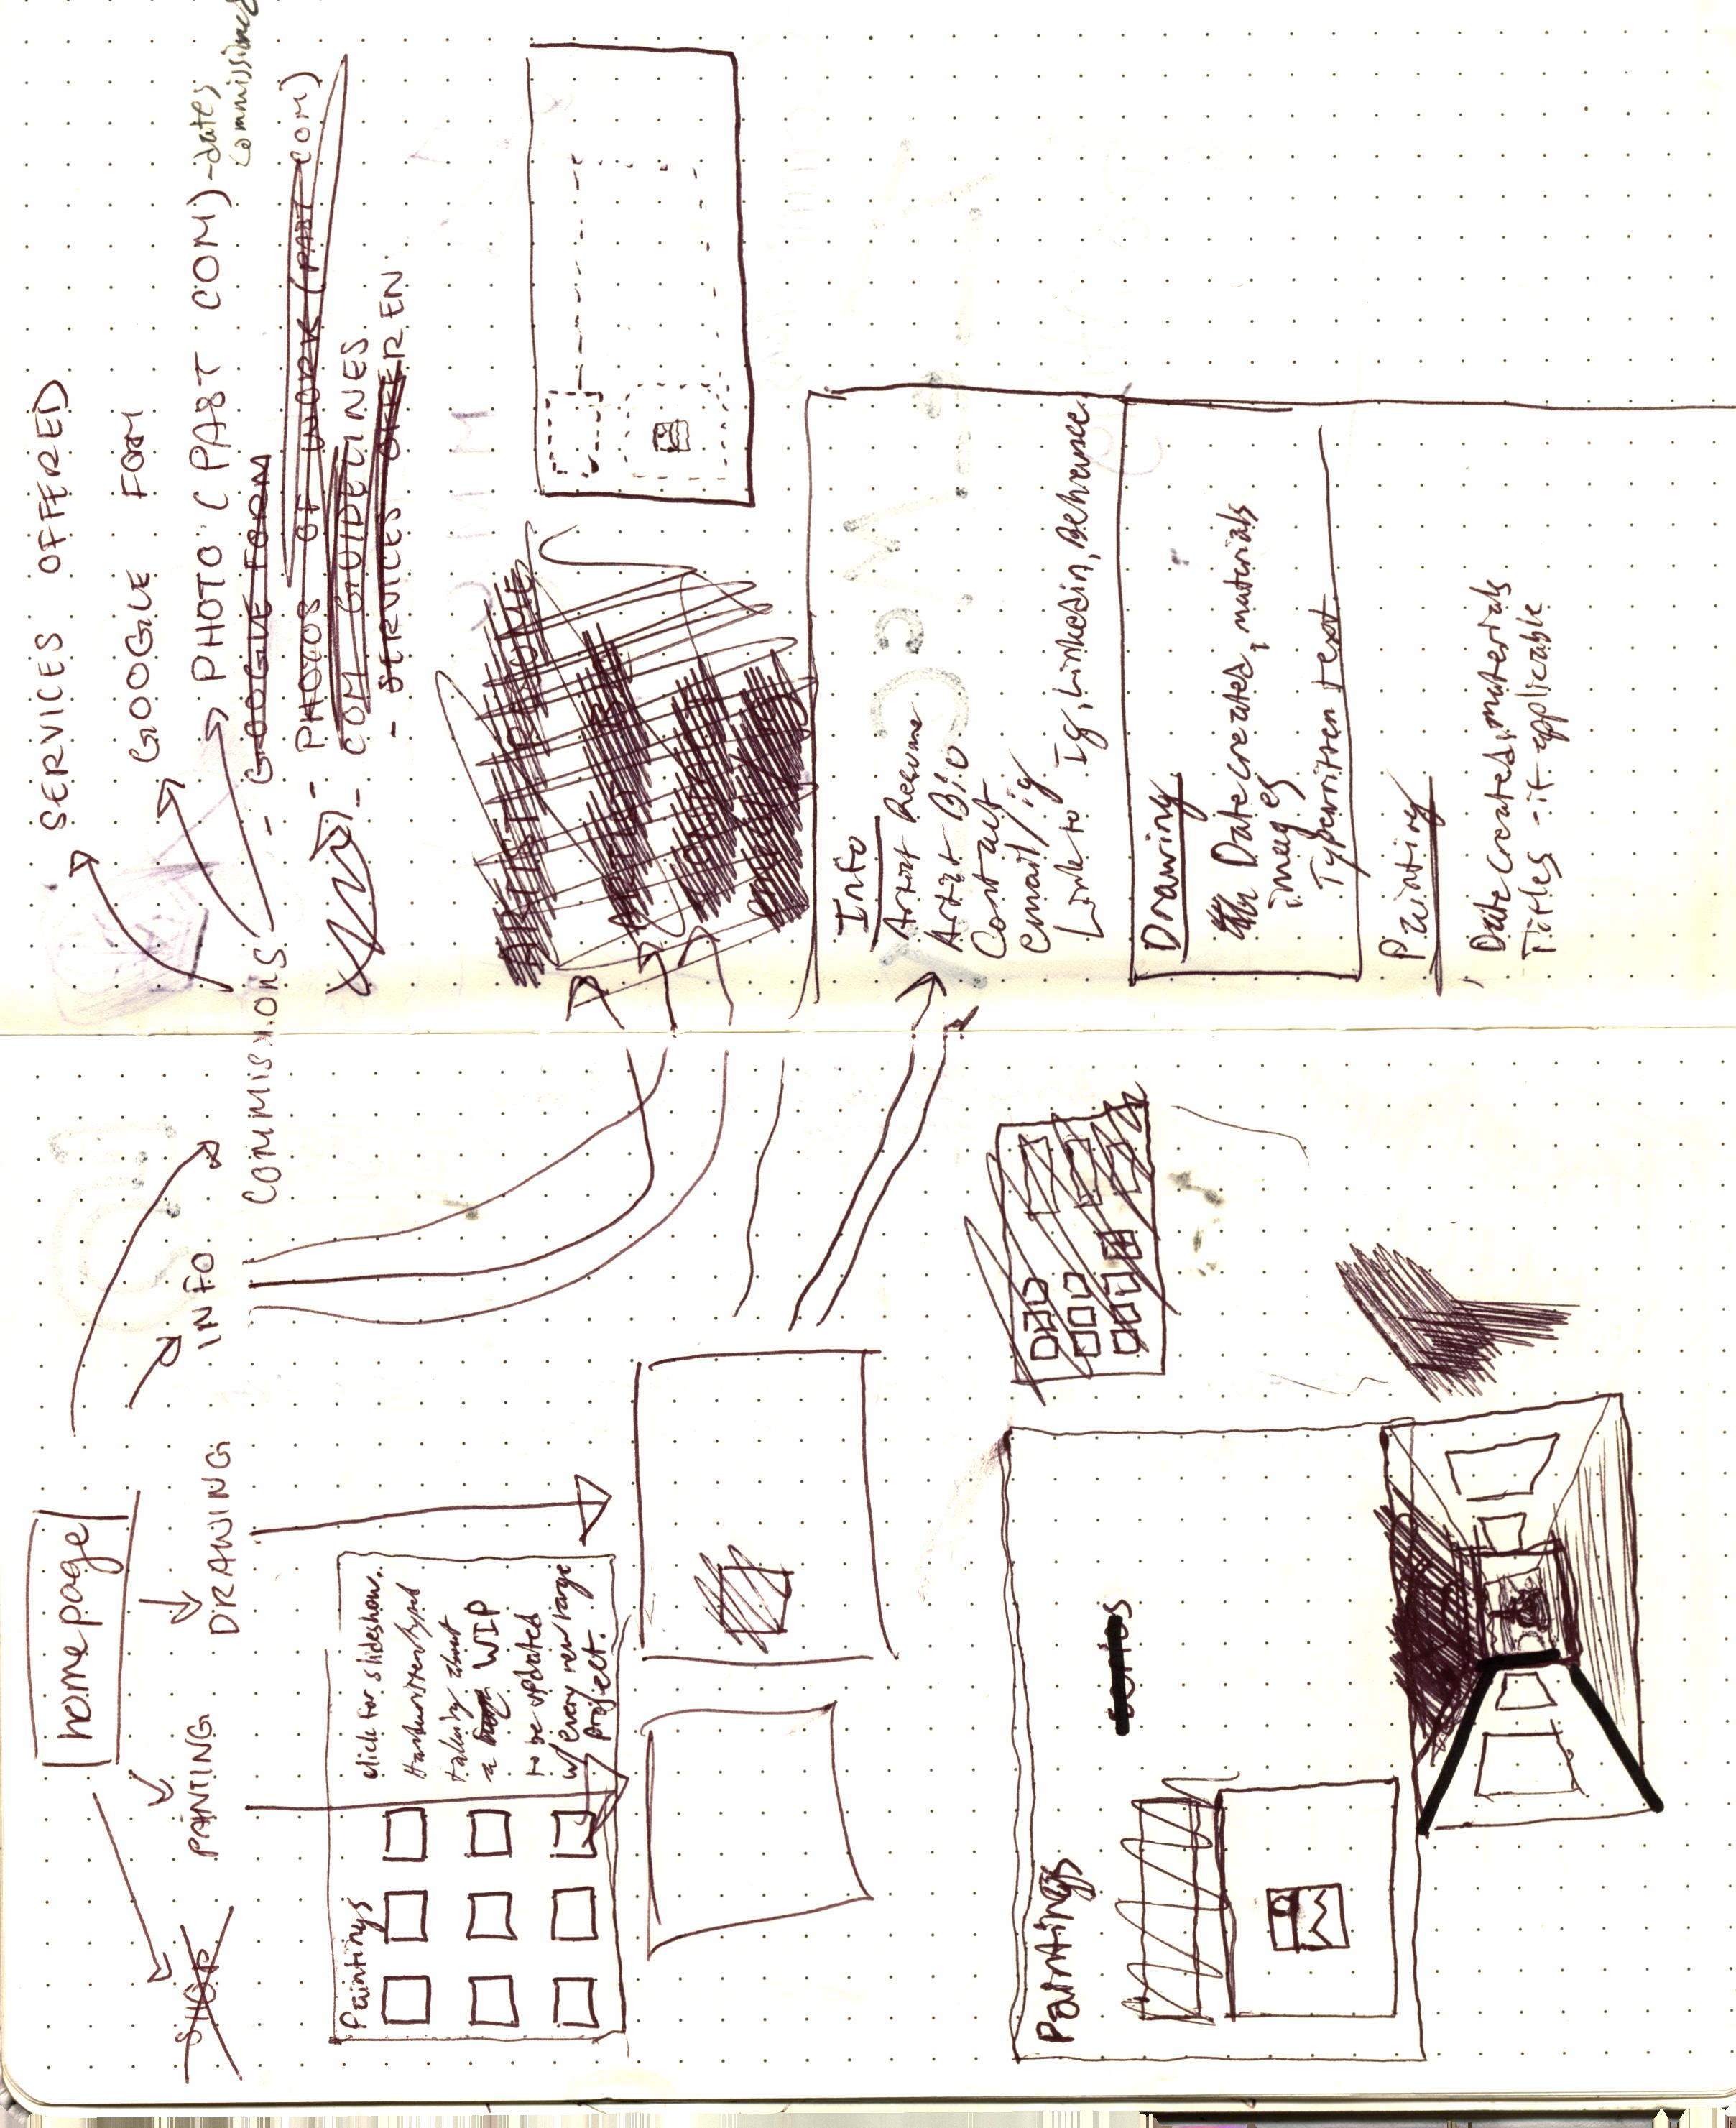 home page
SHOP
PAINTING
DRAWING
INFO
COMMISSIONS
SERVICES OFFERED
GOOGLE FORM
PHOTO (PAST COM) - dates
commissioned
- GOOGLE FORM
- PHOTOS OF WORK (PAST COM)
- COM GUIDELINES
- SERVICES OFFEREN
Paintings
click for slideshow.
Handwritten/typed
talking about
a WIP
to be updated
w/ every new large
project.
ARTIST RESUME
Info
Artist Resume
Artist Bio
Contact
email/ig
Link to Ig, Linkedin, Behance
Drawing
Date created, materials
images
Typewritten text
Painting
Date created, materials
Titles - if applicable
Paintings
series